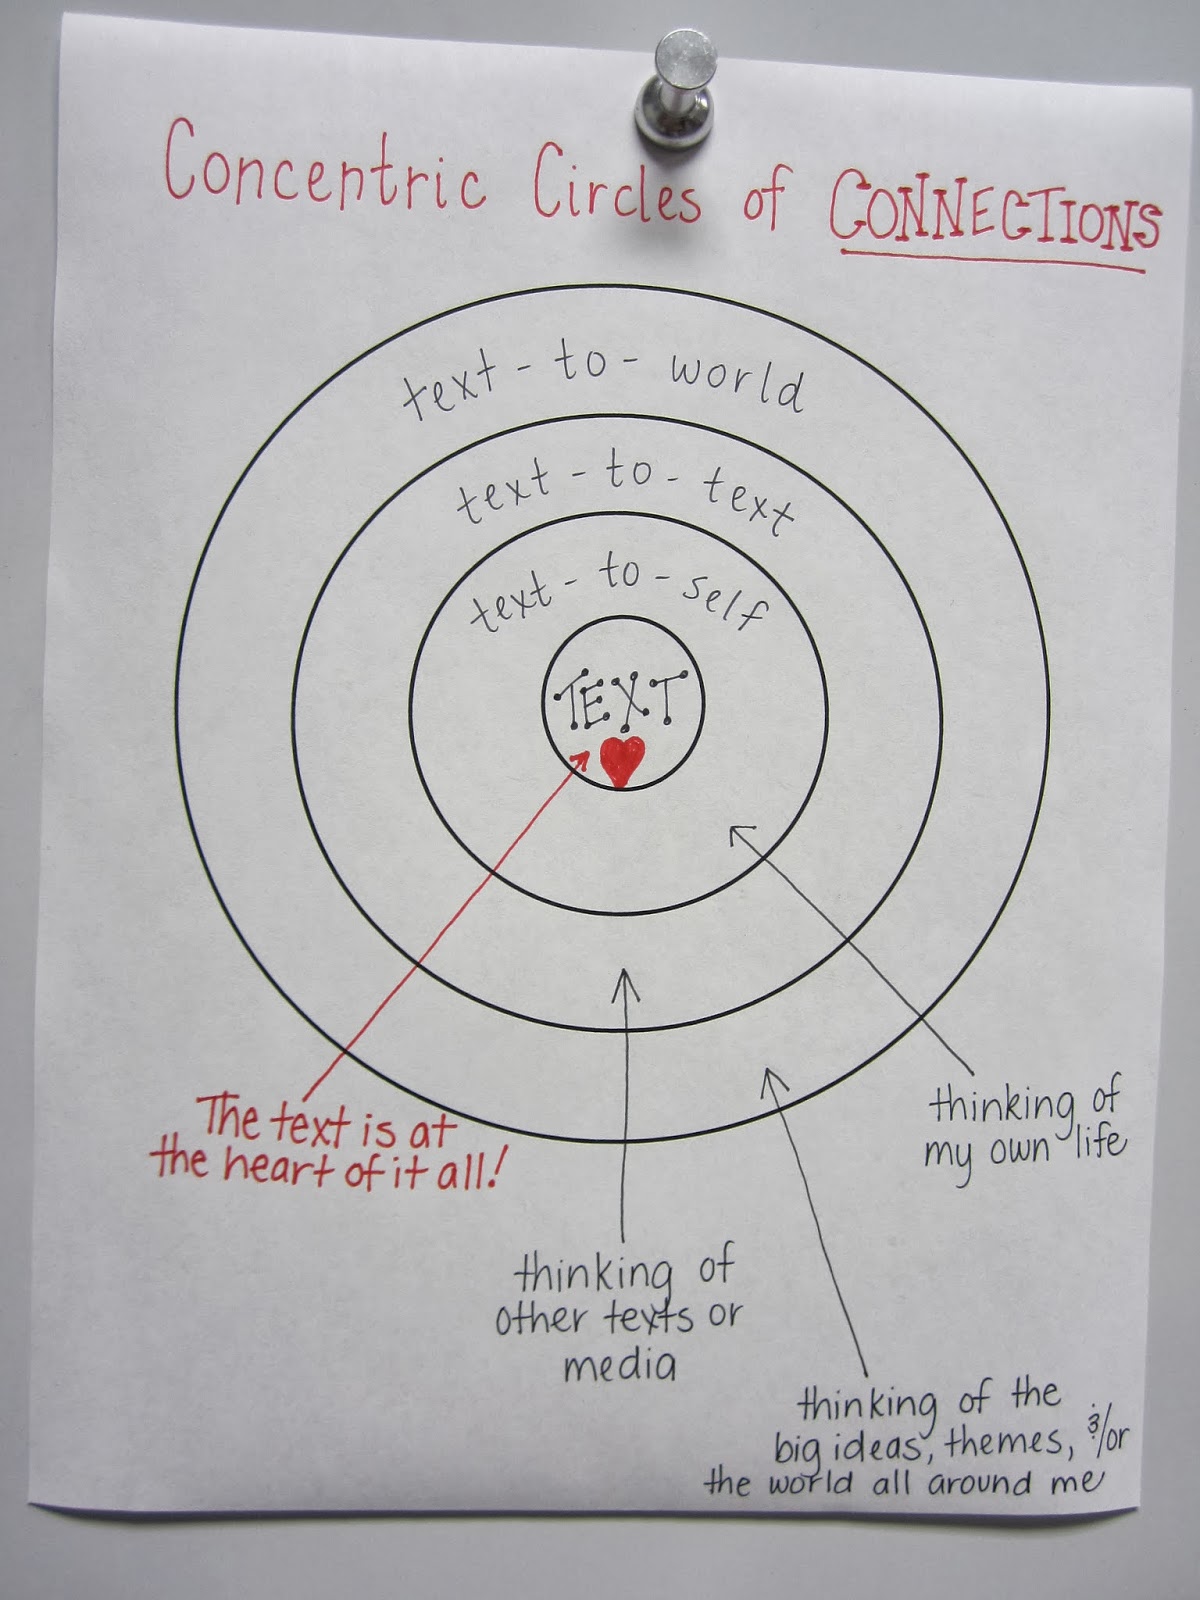 Concentric Circles of CONNECTIONS
text-to-world
text-to-text
text-to-self
TEXT
The text is at
the heart of it all!
thinking of
my own life
thinking of
other texts or
media
thinking of the
big ideas, themes, &/or
the world all around me